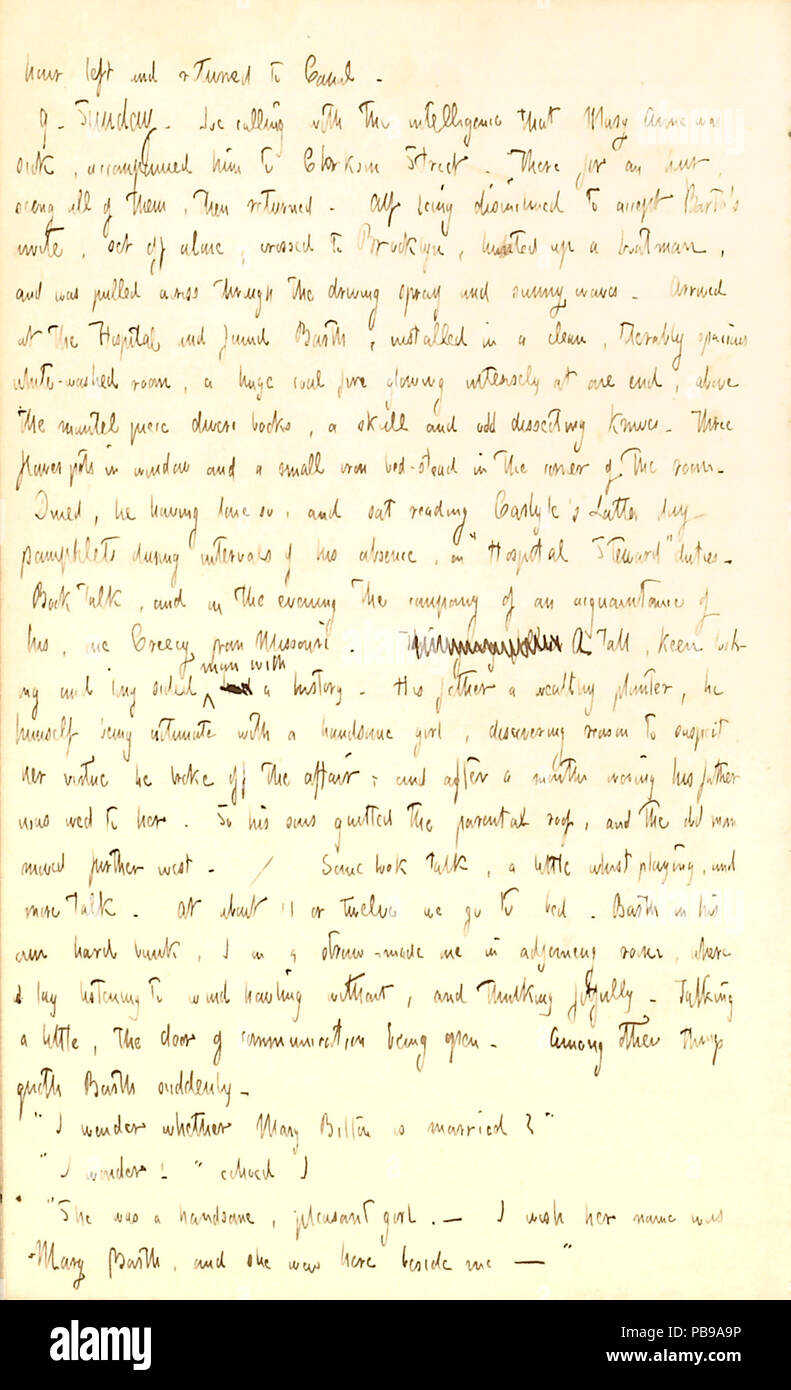 hour left and returned to Canal -
9. Sunday. Joe calling with the intelligence that Mary Anne was
sick, accompanied him to Clarkson Street. There for an hour,
seeing all of them, then returned. Alf being disinclined to accept Barth's
invite, set off alone, crossed to Brooklyn, hunted up a boatman,
and was pulled across through the driving spray and sunny waves. Arrived
at the Hospital and found Barth, installed in a clean, tolerably spacious
white-washed room, a huge coal fire glowing intensely at one end, above
the mantel piece divers books, a skull and odd dissecting knives. Three
flower pots in window and a small iron bed-stead in the corner of the room.
Dined, he having done so, and sat reading Carlyle's Latter day
pamphlets during intervals of his absence, on "Hospital Steward" duties.
Book Talk, and in the evening the company of an acquaintance of
his, one Creecy from Missouri. A Tall, keen look-
ing and long sided man with a history. His father a wealthy planter, he
himself being intimate with a handsome girl, discovering reason to suspect
her virtue he broke off the affair; and after a months wooing his father
was wed to her. So his sons quitted the parental roof, and the old man
moved further west. / Some book talk, a little whist playing, and
more talk. At about 11 or twelve we go to bed. Barth in his
own hard bunk, I on a straw-made one in adjoining room, where
I lay listening to wind howling without, and thinking fitfully. Talking
a little, the door of communication being open. Among other things
quoth Barth suddenly -
"I wonder whether Mary Bilton is married?"
"I wonder!" echoed I
"She was a handsome, pleasant girl. — I wish her name was
Mary Barth, and she was here beside me — "
alamy
Image ID: PB9A9P
www.alamy.com